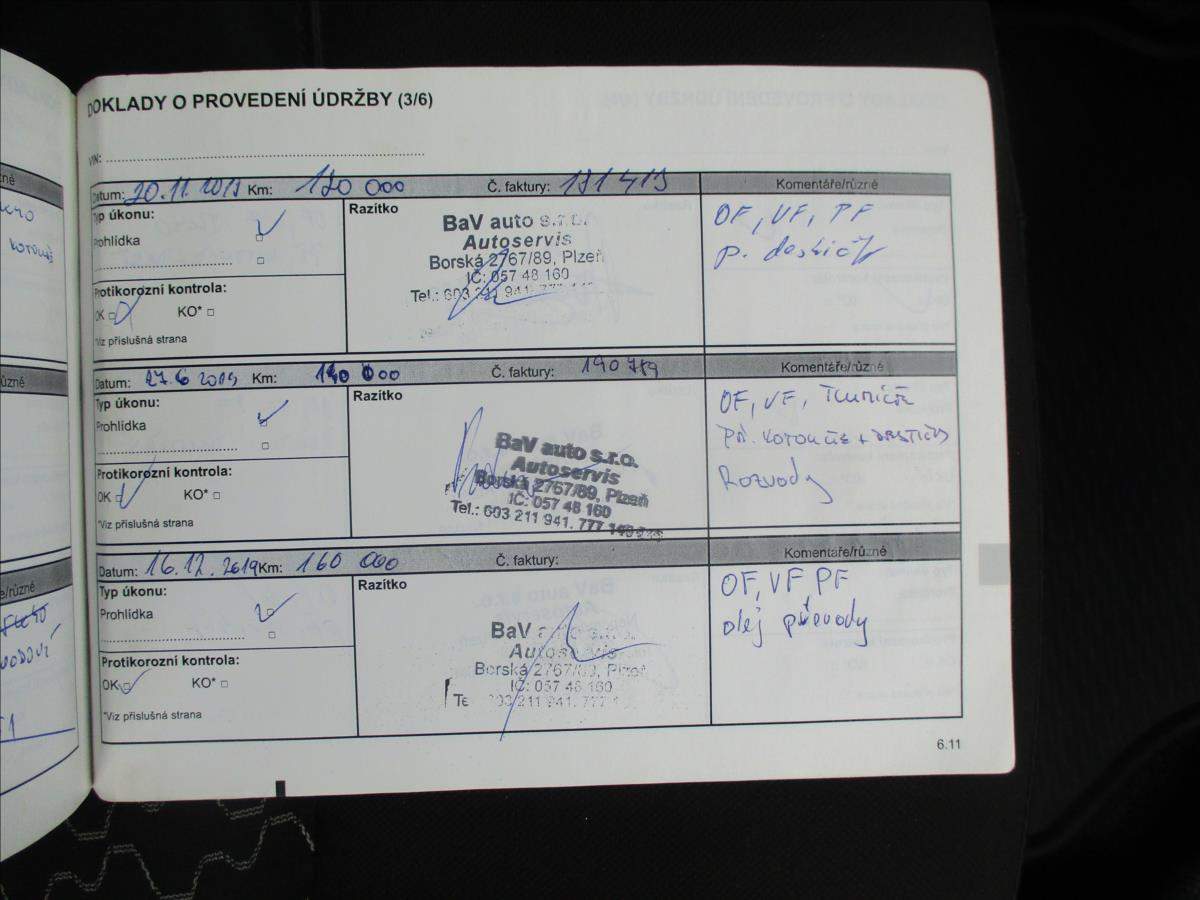 DOKLADY O PROVEDENÍ ÚDRŽBY (3/6)
VIN:
Datum: 20.11.2018 Km: 120 000 Č. faktury: 181413 Komentáře/různé
Typ úkonu:
Prohlídka
Protikorozní kontrola:
OK KO*
*Viz příslušná strana
Razítko
BaV auto s.r.o.
Autoservis
Borská 2767/89, Plzeň
IČ: 057 48 160
Tel.: 603 211 941, 777
OF, VF, PF
p. destičky
Datum: 27.6 2019 Km: 140 000 Č. faktury: 190789 Komentáře/různé
Typ úkonu:
Prohlídka
Protikorozní kontrola:
OK KO*
*Viz příslušná strana
Razítko
BaV auto s.r.o.
Autoservis
Borská 2767/89, Plzeň
IČ: 057 48 160
Tel.: 603 211 941, 777
OF, VF, TLUMIČE
PŘ. KOTOUČE + DESTIČKY
Rozvody
Datum: 16.12.2019 Km: 160 000 Č. faktury: Komentáře/různé
Typ úkonu:
Prohlídka
Protikorozní kontrola:
OK KO*
*Viz příslušná strana
Razítko
BaV auto s.r.o.
Autoservis
Borská 2767/89, Plzeň
IČ: 057 48 160
603 211 941, 777
OF, VF PF
olej převody
6.11